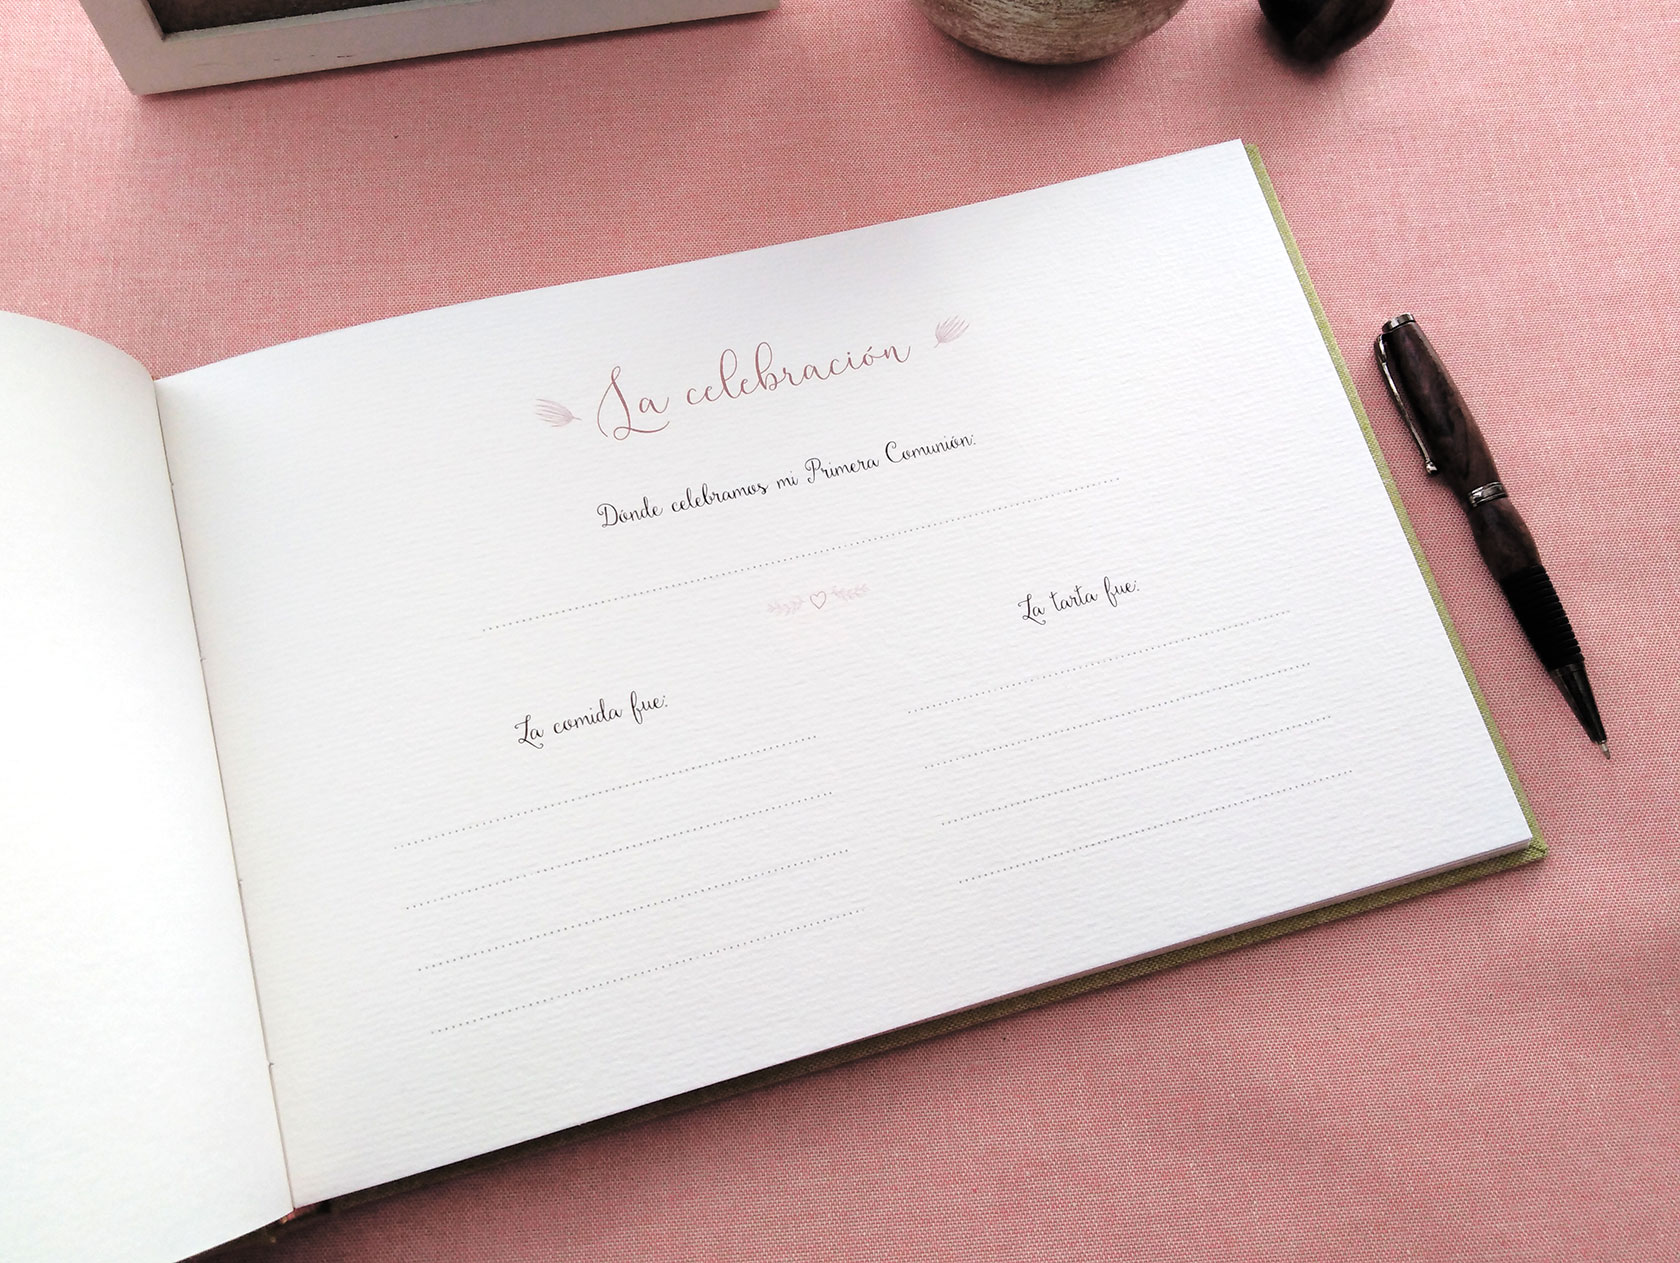 La celebración
Dónde celebramos mi Primera Comunión:
La comida fue:
La tarta fue: